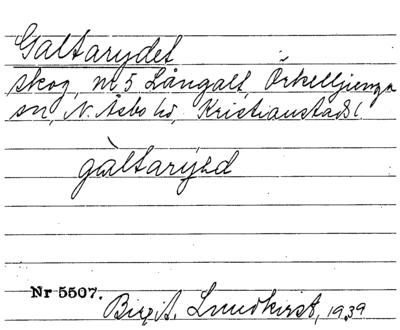 Galtarydet
skog, nr 5 Långalt, Örkelljunga
sn, N. Åsbo hd, Kristianstads l.
gàltarýed
Nr 5507.
Birgit. Lundkvist, 1939